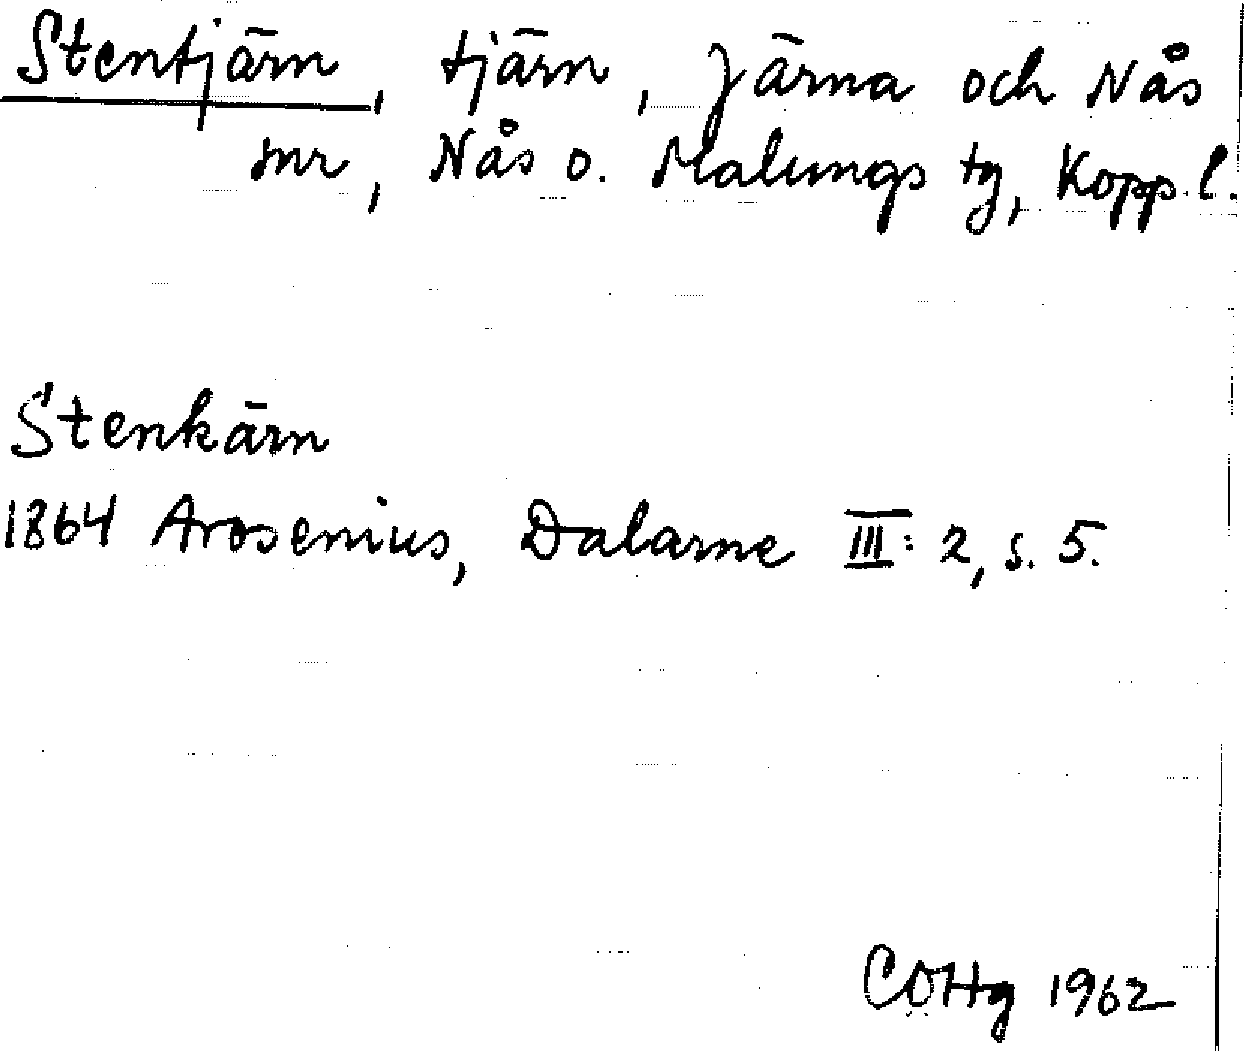 Stentjärn, tjärn, Järna och Nås
snr, Nås o. Malungs tg, Kopp. l.
Stenkärn
1864 Arosenius, Dalarne III: 2, s. 5.
COHg 1962